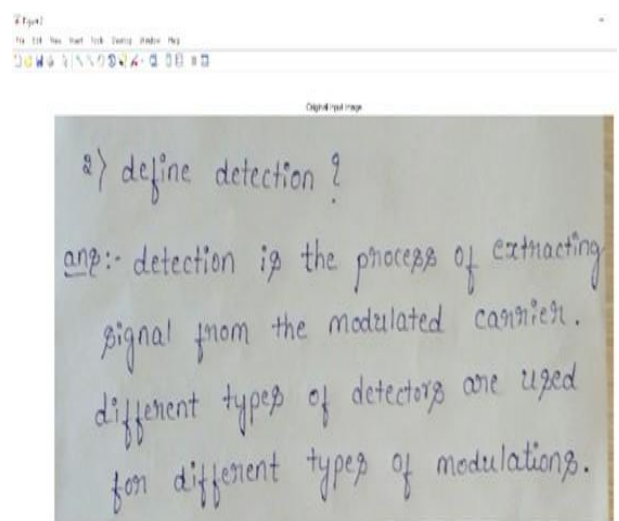 Figure 2
File Edit View Insert Tools Desktop Window Help
Original input image
2) define detection ?
ans:- detection is the process of extracting
signal from the modulated carrier.
different types of detectors are used
for different types of modulations.